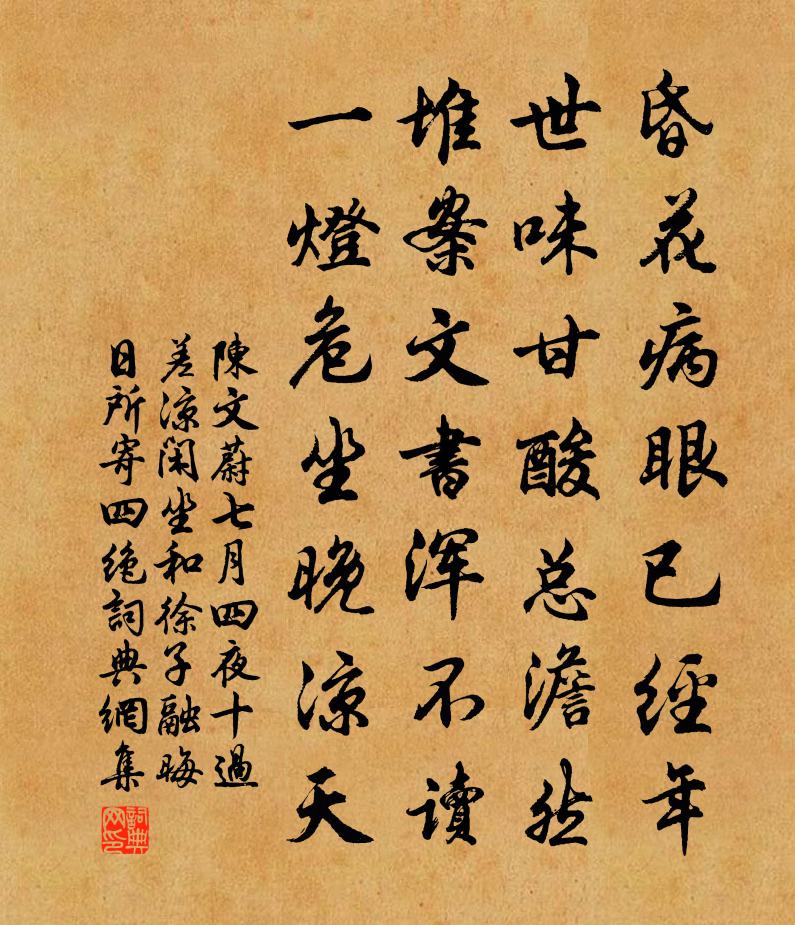 昏花病眼已經年
世味甘酸总澹然
堆案文書浑不读
一燈危坐晚凉天
陳文蔚七月四夜十過
差凉闲坐和徐子融晦
日所寄四绝詞典網集
詞典网印